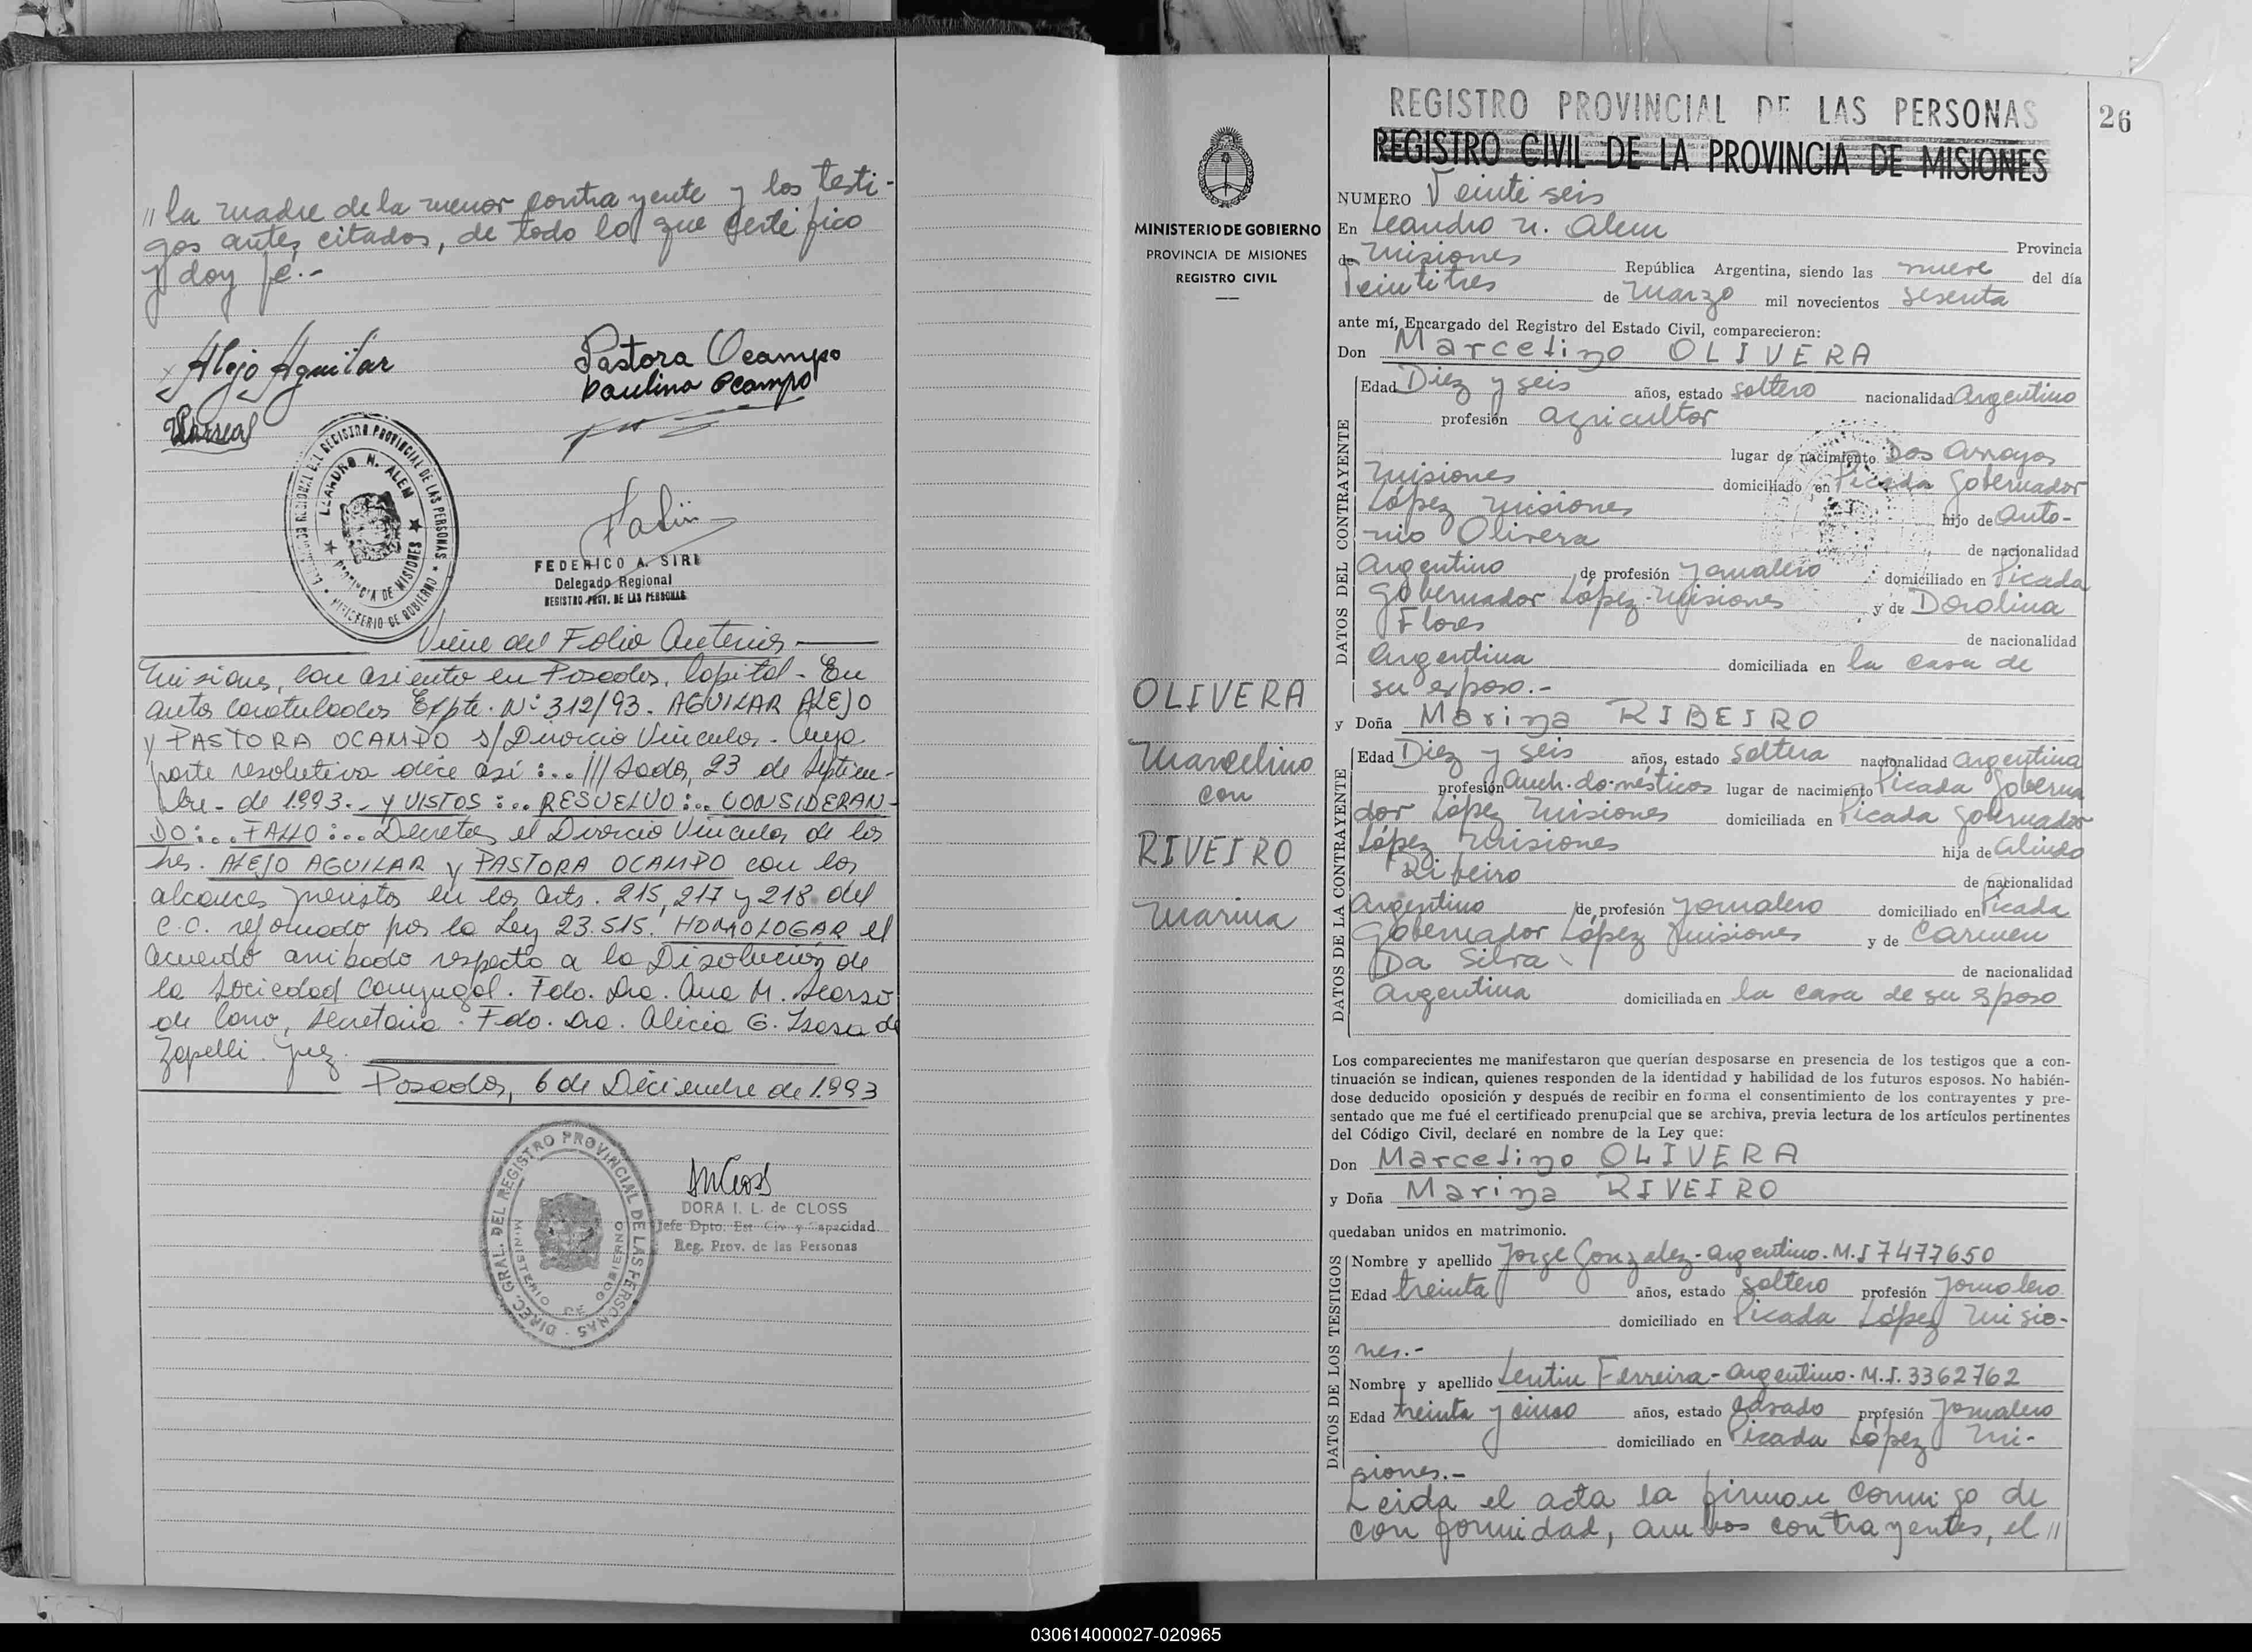 // la madre de la menor contrayente y los testi-
gos antes citados, de todo lo que certifico
y doy fé.-
Alejo Aguilar
Pastora Ocampo
Paulina Ocampo
DELEGACION REGIONAL DEL REGISTRO PROVINCIAL DE LAS PERSONAS
LEANDRO N. ALEM
PROVINCIA DE MISIONES
MINISTERIO DE GOBIERNO
FEDERICO A. SIRI
Delegado Regional
REGISTRO PROV. DE LAS PERSONAS
Viene del Folio Anterior
Misiones, con asiento en Posadas, Capital - En
autos caratulados Expte. Nº 312/93. AGUILAR ALEJO
y PASTORA OCAMPO s/ Divorcio Vincular. Cuya
parte resolutiva dice así :.. /// sadas, 23 de Septiem-
bre - de 1.993.- y VISTOS :.. RESUELVO :.. CONSIDERAN-
DO :.. FALLO :.. Decretar el Divorcio Vincular de los
Sres. ALEJO AGUILAR y PASTORA OCAMPO con los
alcances previstos en los arts. 215, 217 y 218 del
C.C. reformado por la Ley 23.515. HOMOLOGAR el
acuerdo arribado respecto a la Disolución de
la Sociedad Conyugal. Fdo. Dra. Ana M.
de Cano, Secretaria. Fdo. Dra. Alicia G. de
Zapelli. Juez.
Posadas, 6 de Diciembre de 1.993
DIREC. GRAL. DEL REGISTRO PROVINCIAL DE LAS PERSONAS
MINISTERIO DE GOBIERNO
DORA I. L. de CLOSS
Jefe Dpto. Est. Civ. y Capacidad
Reg. Prov. de las Personas
MINISTERIO DE GOBIERNO
PROVINCIA DE MISIONES
REGISTRO CIVIL
OLIVERA
Marcelino
con
RIVEIRO
Marina
REGISTRO PROVINCIAL DE LAS PERSONAS
26
REGISTRO CIVIL DE LA PROVINCIA DE MISIONES
NUMERO Veinte seis
En Leandro N. Alem Provincia
de Misiones República Argentina, siendo las nueve del día
Veintitres de Marzo mil novecientos sesenta
ante mí, Encargado del Registro del Estado Civil, comparecieron:
Don Marcelino OLIVERA
DATOS DEL CONTRAYENTE
Edad Diez y seis años, estado soltero nacionalidad Argentino
profesión agricultor
lugar de nacimiento Dos Arroyos
Misiones domiciliado en Picada Gobernador
López Misiones hijo de Anto-
nio Olivera de nacionalidad
Argentino de profesión Jornalero domiciliado en Picada
Gobernador López Misiones y de Dorolina
Flores de nacionalidad
Argentina domiciliada en la casa de
su esposo.-
y Doña Marina RIBEIRO
DATOS DE LA CONTRAYENTE
Edad Diez y seis años, estado soltera nacionalidad argentina
profesión Queh. domésticos lugar de nacimiento Picada Goberna
dor López Misiones domiciliada en Picada Gobernador
López Misiones hija de Alindo
Ribeiro de nacionalidad
Argentino de profesión Jornalero domiciliado en Picada
Gobernador López Misiones y de Carmen
Da Silva de nacionalidad
Argentina domiciliada en la casa de su esposo
Los comparecientes me manifestaron que querían desposarse en presencia de los testigos que a con-
tinuación se indican, quienes responden de la identidad y habilidad de los futuros esposos. No habién-
dose deducido oposición y después de recibir en forma el consentimiento de los contrayentes y pre-
sentado que me fué el certificado prenupcial que se archiva, previa lectura de los artículos pertinentes
del Código Civil, declaré en nombre de la Ley que:
Don Marcelino OLIVERA
y Doña Marina RIVEIRO
quedaban unidos en matrimonio.
DATOS DE LOS TESTIGOS
Nombre y apellido Jorge Gonzalez - argentino. M.I 7477650
Edad treinta años, estado soltero profesión Jornalero
domiciliado en Picada López Misio-
nes.-
Nombre y apellido Lentin Ferreira - Argentino. M.I. 3362762
Edad treinta y cinco años, estado casado profesión Jornalero
domiciliado en Picada López Mi-
siones.-
Leida el acta la firman conmigo de
conformidad, ambos contrayentes, el //
030614000027-020965